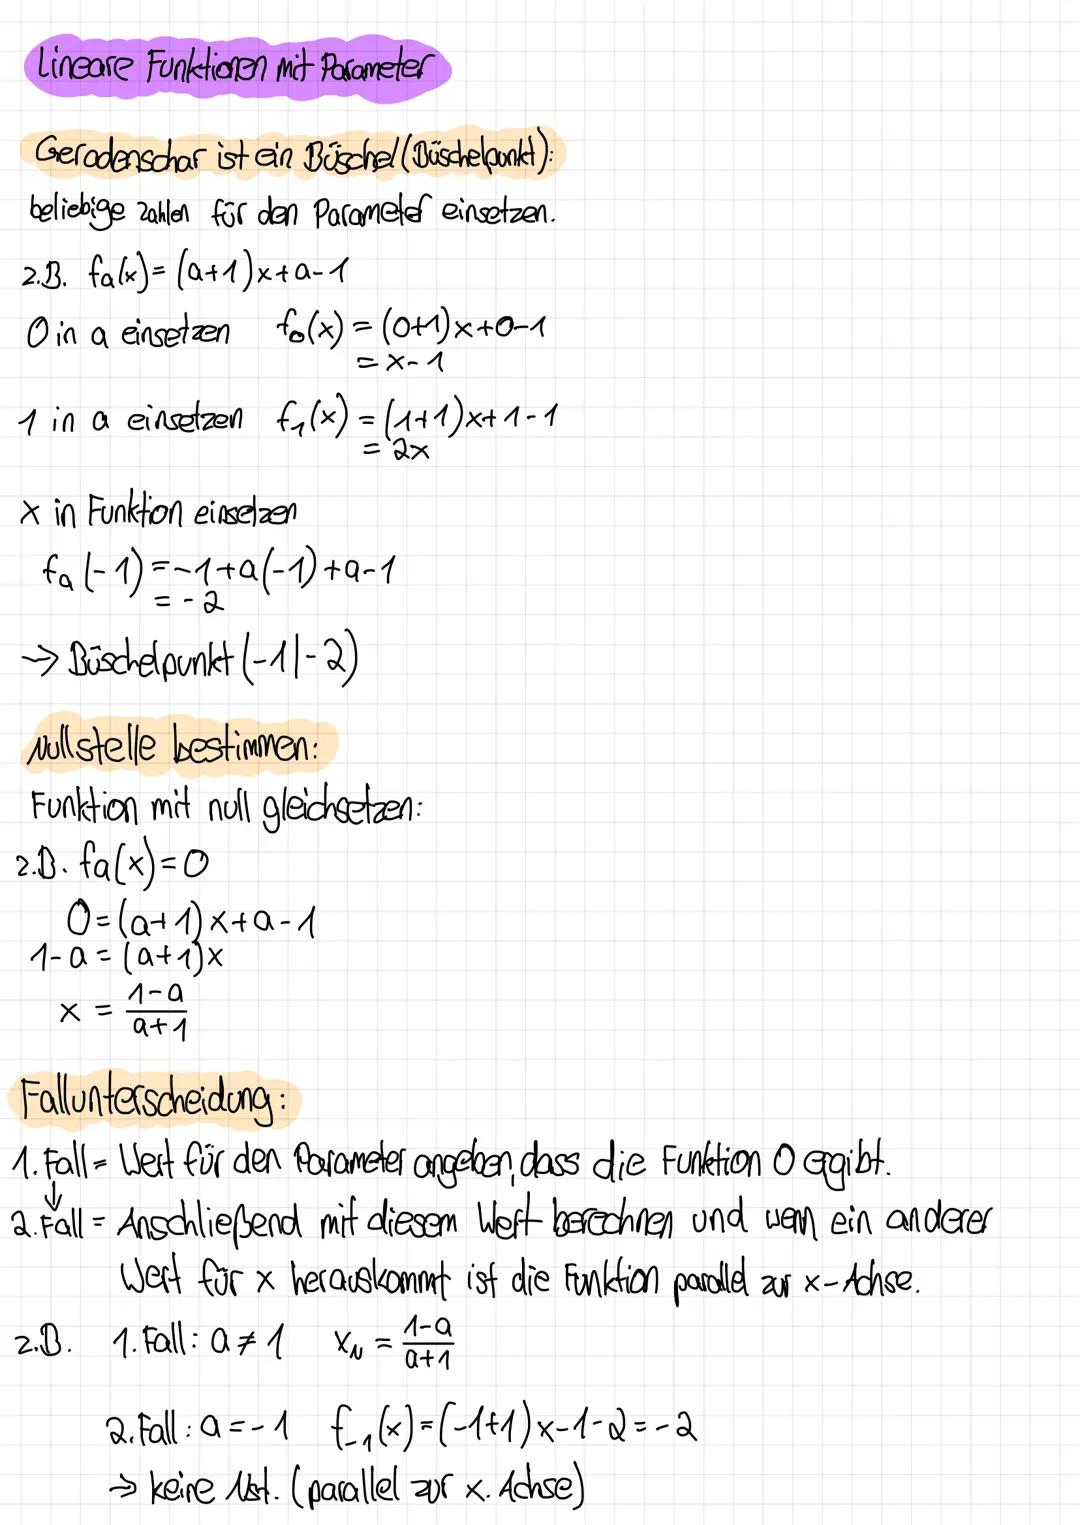 Lineare Funktionen mit Parameter
Geradenschar ist ein Büschel (Büschelpunkt):
beliebige Zahlen für den Parameter einsetzen.
z.B. fa(x) = (a+1)x+a-1
0 in a einsetzen f₀(x) = (0+1)x+0-1
= x-1
1 in a einsetzen f₁(x) = (1+1)x+1-1
= 2x
x in Funktion einsetzen
fa(-1) = -1+a(-1)+a-1
= -2
→ Büschelpunkt (-1|-2)
Nullstelle bestimmen:
Funktion mit null gleichsetzen:
z.B. fa(x) = 0
0 = (a+1)x+a-1
1-a = (a+1)x
x = \frac{1-a}{a+1}
Fallunterscheidung:
1. Fall = Wert für den Parameter angeben, dass die Funktion 0 ergibt.
↓
2. Fall = Anschließend mit diesem Wert berechnen und wenn ein anderer
Wert für x herauskommt ist die Funktion parallel zur x-Achse.
z.B. 1. Fall: a ≠ 1 x_N = \frac{1-a}{a+1}
2. Fall: a = -1 f₋₁(x) = (-1+1)x-1-2 = -2
→ keine Nst. (parallel zur x. Achse)